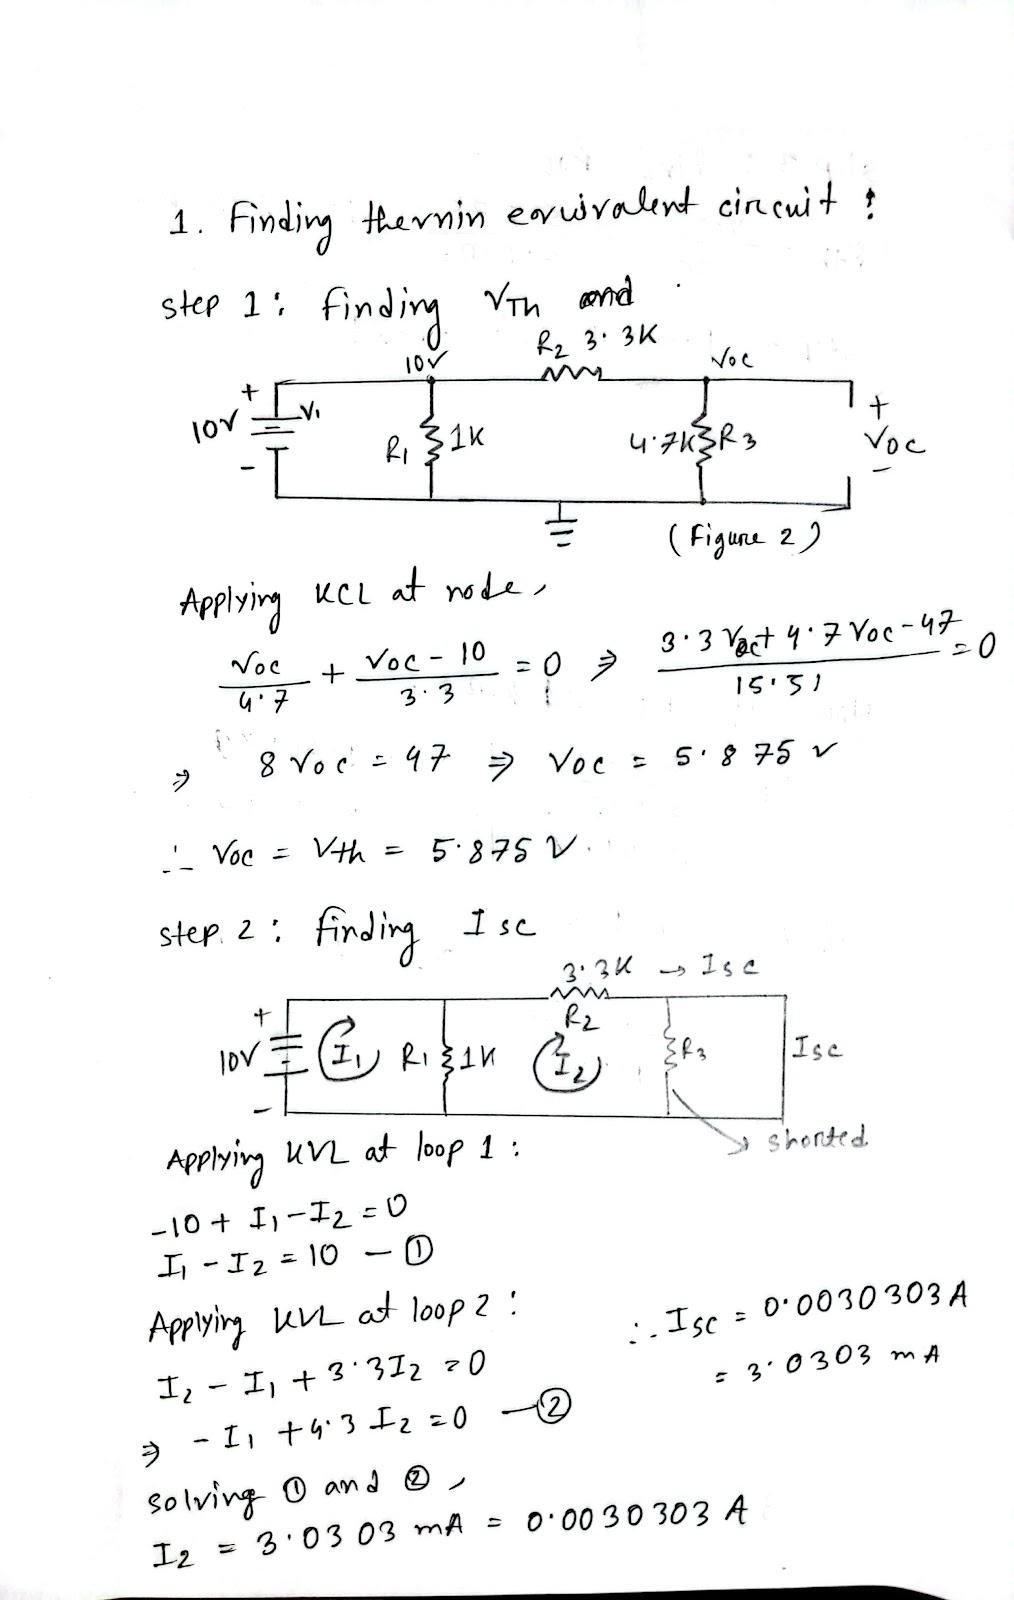 1. Finding thevnin equivalent circuit :
step 1: finding VTh and
R2 3.3K
10V
Voc
+
10V
V1
-
R1
1K
4.7K
R3
+
Voc
-
(Figure 2)
Applying KCL at node,
Voc/4.7 + Voc - 10/3.3 = 0 ⇒ 3.3 Voc + 4.7 Voc - 47/15.51 = 0
⇒ 8 Voc = 47 ⇒ Voc = 5.875 V
∴ Voc = Vth = 5.875 V.
step 2: finding Isc
3.3K → Isc
R2
+
10V
-
I1
R1
1K
I2
R3
Isc
shorted
Applying KVL at loop 1 :
-10 + I1 - I2 = 0
I1 - I2 = 10 — ①
Applying KVL at loop 2 :
I2 - I1 + 3.3 I2 = 0
⇒ - I1 + 4.3 I2 = 0 — ②
solving ① and ② ,
I2 = 3.0303 mA = 0.0030303 A
∴ Isc = 0.0030303 A
= 3.0303 mA